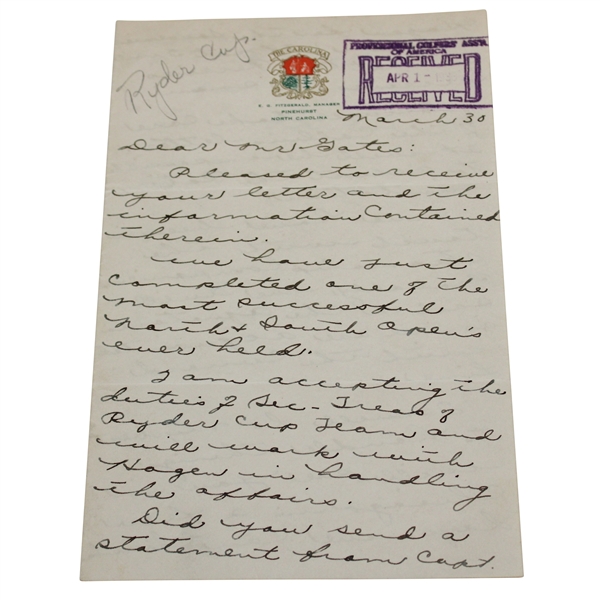 Ryder Cup.
THE CAROLINA
PROFESSIONAL GOLFERS' ASS'N.
OF AMERICA
RECEIVED
APR 1 -
MANAGER
PINEHURST
NORTH CAROLINA
March 30
Dear Mr Gates:
Pleased to receive
your letter and the
information contained
therein.
We have just
completed one of the
most successful
North & South Open's
ever held.
I am accepting the
duties of Sec-Treas of
Ryder Cup Team and
will work with
Hagen in handling
the affairs.
Did you send a
statement from Capt.